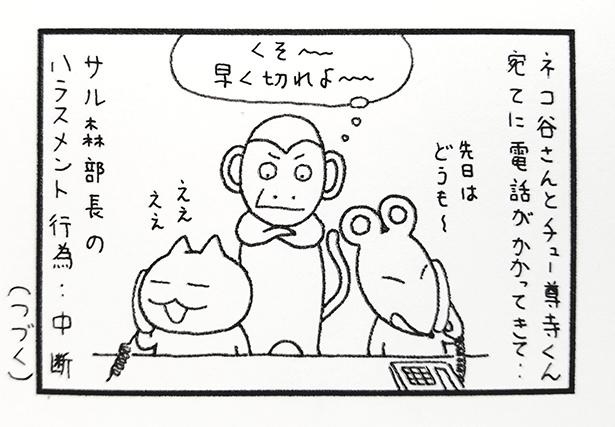 ネコ谷さんとチュー尊寺くん
宛てに電話がかかってきて‥
くそ〜〜
早く切れよ〜〜
先日は
どうも〜
ええ
ええ
サル森部長の
ハラスメント行為‥中断
(つづく)